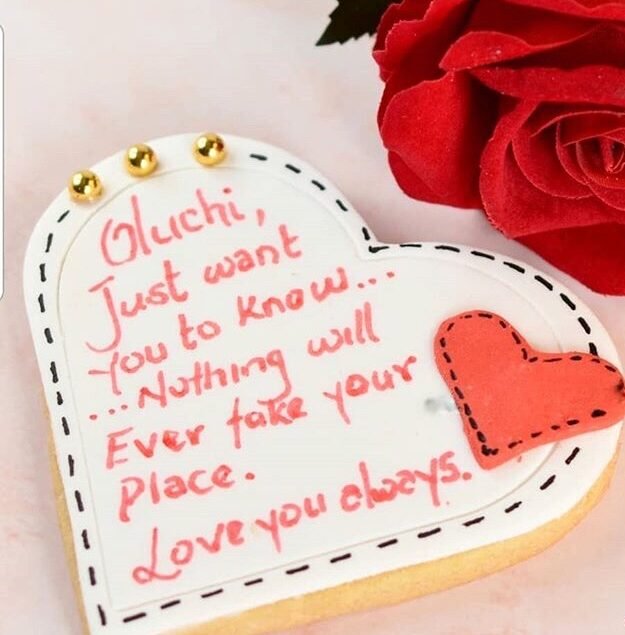 Oluchi,
Just want
you to know...
...Nothing will
Ever take your
Place.
Love you always.